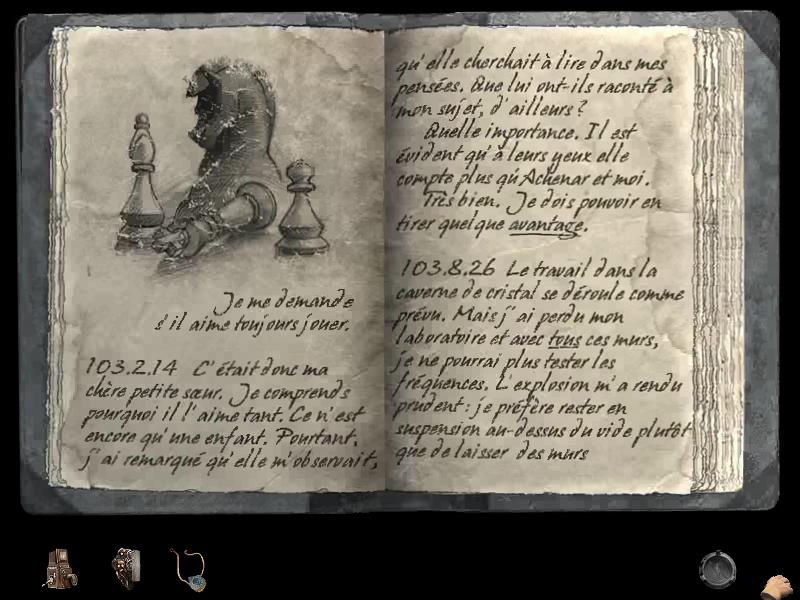 Je me demande
s'il aime toujours jouer.
103.2.14 C'était donc ma
chère petite sœur. Je comprends
pourquoi il l'aime tant. Ce n'est
encore qu'une enfant. Pourtant,
j'ai remarqué qu'elle m'observait,
qu'elle cherchait à lire dans mes
pensées. Que lui ont-ils raconté à
mon sujet, d'ailleurs?
Quelle importance. Il est
évident qu'à leurs yeux elle
compte plus qu'Achenar et moi.
Très bien. Je dois pouvoir en
tirer quelque avantage.
103.8.26 Le travail dans la
caverne de cristal se déroule comme
prévu. Mais j'ai perdu mon
laboratoire et avec tous ces murs,
je ne pourrai plus tester les
fréquences. L'explosion m'a rendu
prudent: je préfère rester en
suspension au-dessus du vide plutôt
que de laisser des murs